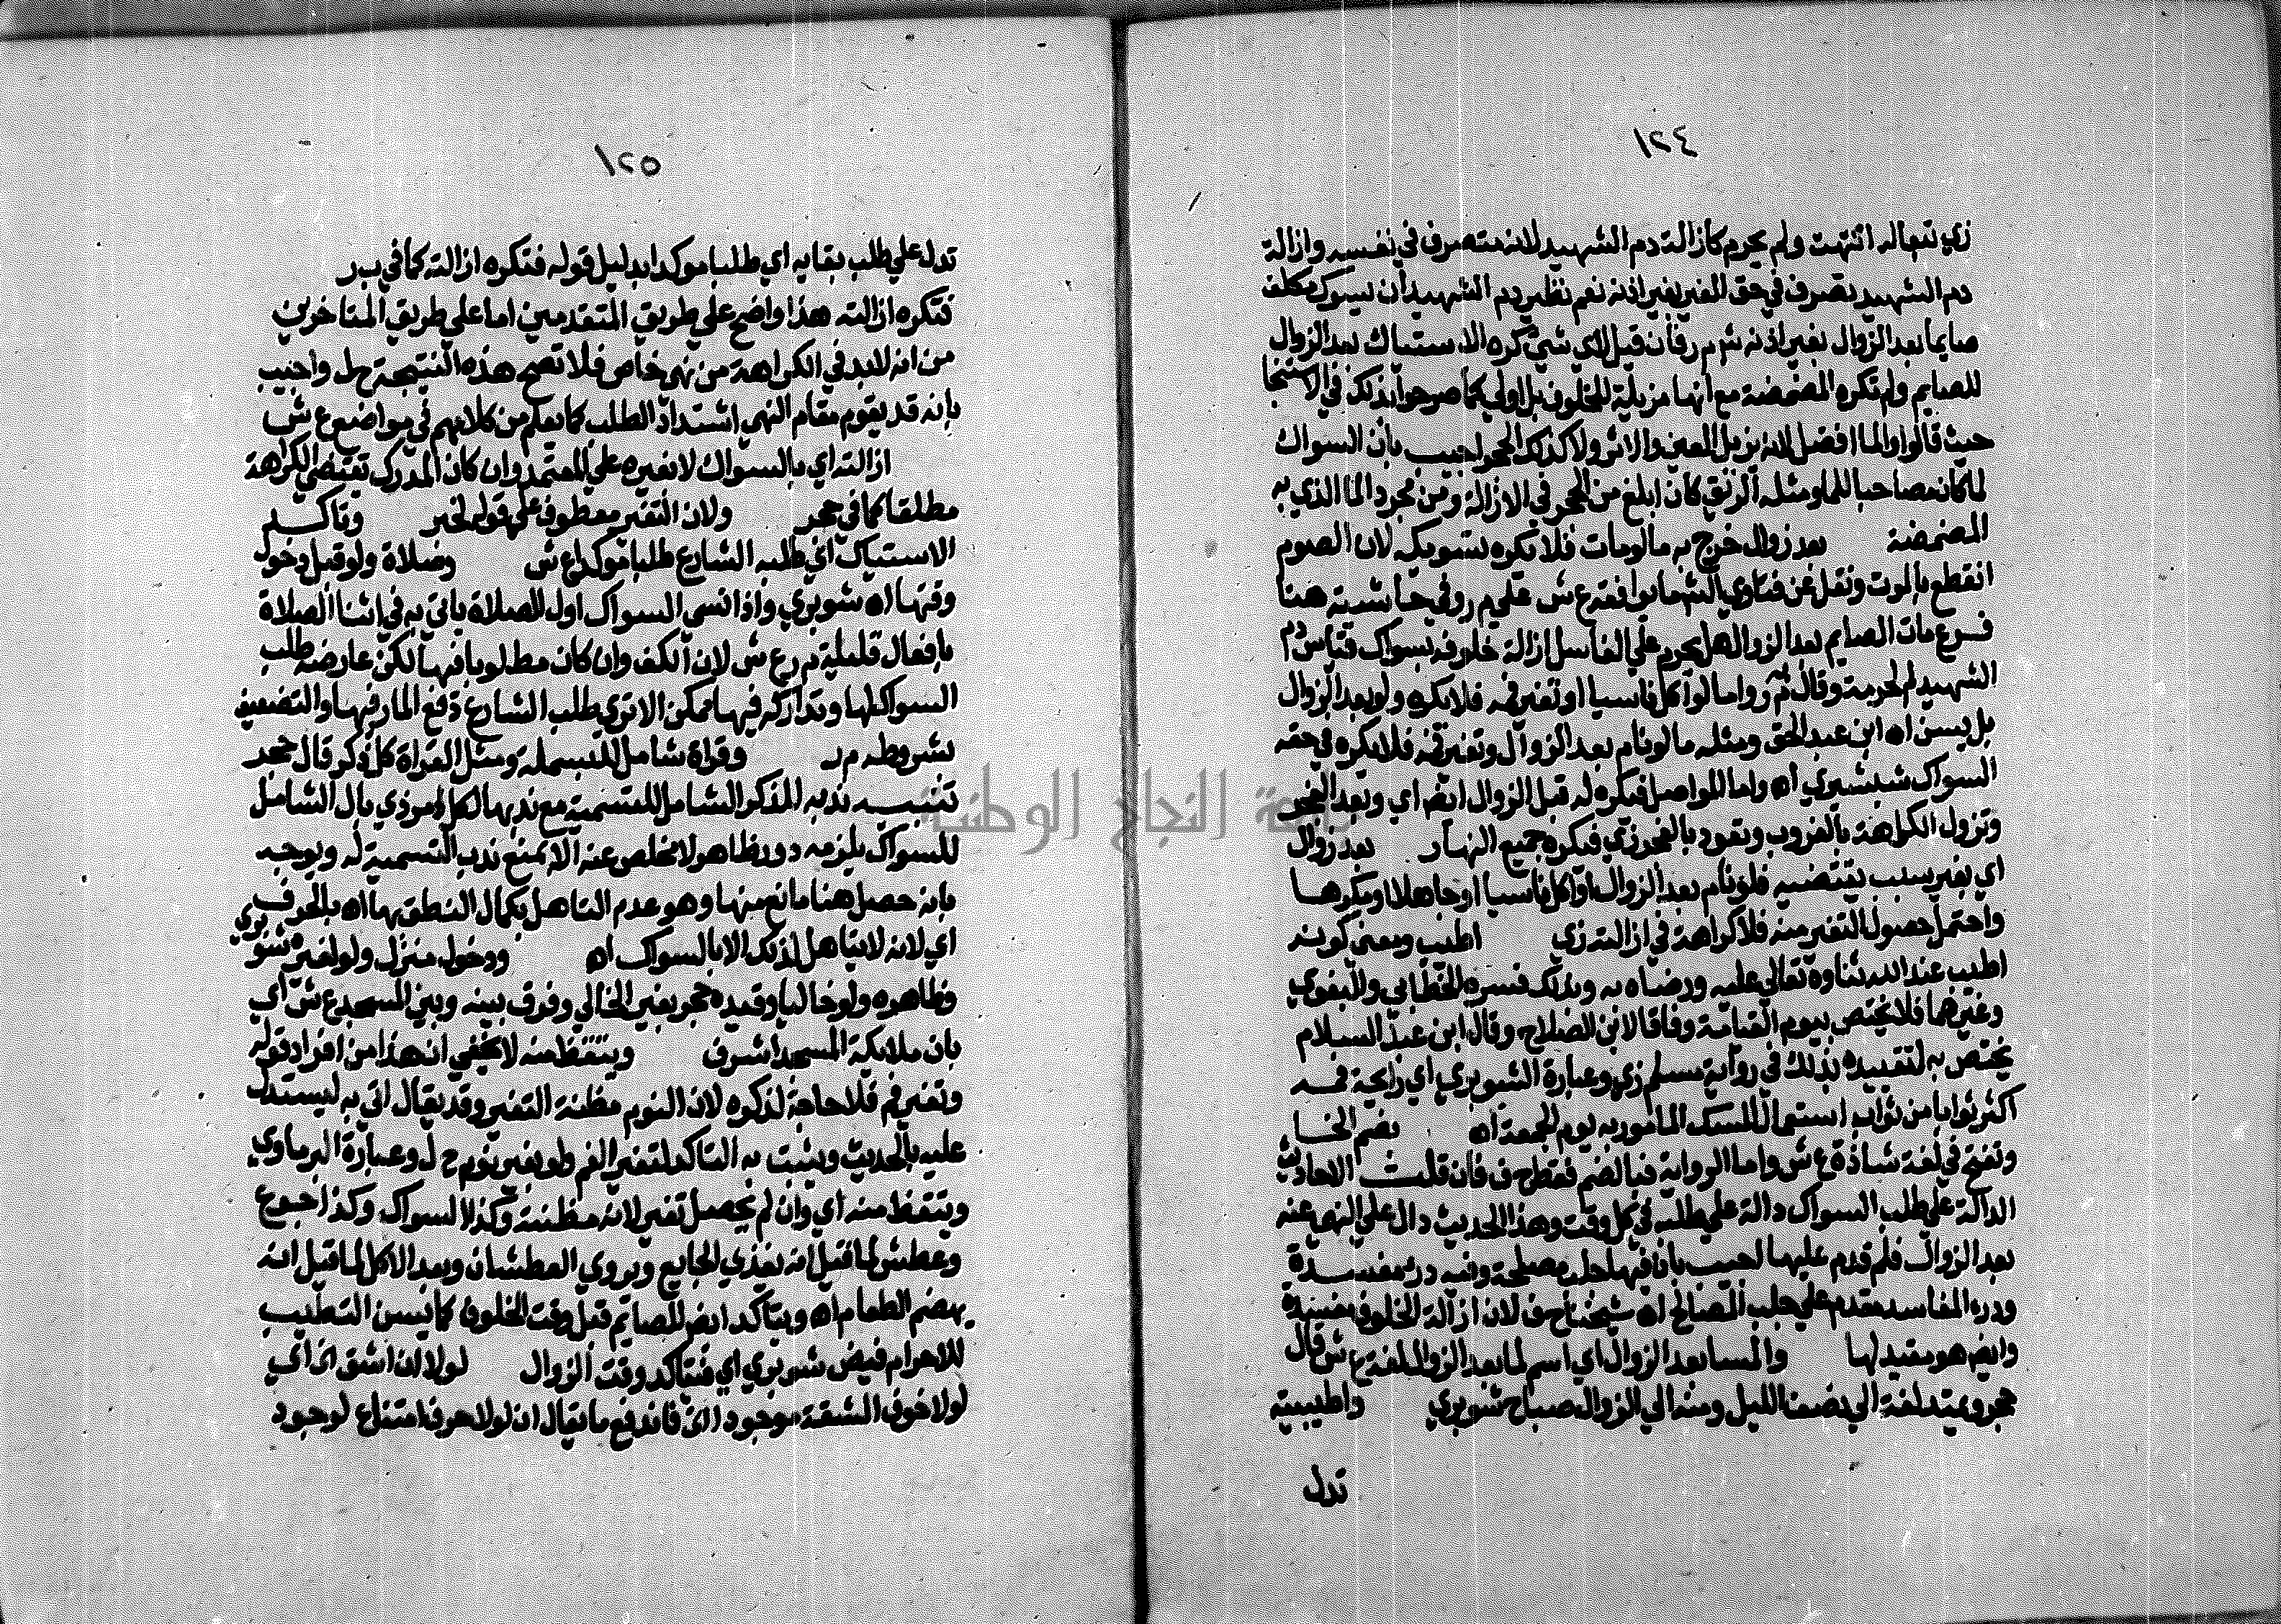 ١٢٤
زي تبعاله انتهت ولم يحرم كازالة دم الشهيد لانه متصرف في نفسه وازالة
دم الشهيد تصرف في حق الغير بغير اذنه نعم نظير دم الشهيد أن يسوك مكلف
صايما بعد الزوال بغير اذنه شم م ر فان قيل لاي شي كره الاستياك بعد الزوال
للصايم ولم تكره المضمضة مع انها مزيلة للخلوف بل اولي كما صرحوا بذلك في الاستنجا
حيث قالوا والما افضل لانه يزيل العين والاثر ولا كذلك الحجر اجيب بأن السواك
لما كان مصاحبا للما ومثله الريق كان ابلغ من الحجر في الازالة ومن مجرد الما الذي به
المضمضة بعد زوال خرج به ما لو مات فلا يكره تسويكه لان الصوم
انقطع بالموت ونقل عن فتاوي الشهاب ما وافقه ع ش علي م ر وفي حاشيته هنا
فرع مات الصايم بعد الزوال هل يحرم علي الغاسل ازالة خلوفه بسواك قياس دم
الشهيد لم الحرمة وقال به م ر واما لو اكل ناسيا او تغير فمه فلا يكره ولو بعد الزوال
بل يسن اه ابن عبد الحق ومثله ما لو نام بعد الزوال وتغير فمه فلا يكره في حقه
السواك شبشيري اه واما المواصل فيكره له قبل الزوال ايضا اي وبعد الفجر
وتزول الكراهة بالغروب وتعود بالفجر زي فيكره جميع النهار بعد زوال
اي بغير سبب يقتضيه فلو نام بعد الزوال او اكل ناسيا او جاهلا او مكرها
واحتمل حصول التغير منه فلا كراهة في ازالته زي اطيب ومعني كونه
اطيب عند الله ثناوه تعالي عليه ورضاه به وبذلك فسره الخطابي والبغوي
وغيرهما فلا يختص بيوم القيامة وفاقا لابن الصلاح وقال ابن عبد السلام
يختص به لتقييده بذلك في رواية مسلم زي وعبارة الشوبري اي رايحة فمه
اكثر ثوابا من ثواب استعمال المسك المامور به يوم الجمعة اه بضم الخا
وتفتح في لغة شاذة ع ش واما الرواية فبالضم فقط ح ف فان قلت الاحاديث
الدالة علي طلب السواك دالة علي طلبه في كل وقت وهذا الحديث دال علي النهي عنه
بعد الزوال فلم قدم عليها اجيب بان فيها جلب مصلحة وفيه درء مفسدة
ودرء المفاسد مقدم علي جلب المصالح اه شيخنا ح ف لان ازالة الخلوف مفسدة
وايضا هو مقيد لها والمسا بعد الزوال اي اسم لما بعد الزوال لغة ع ش قال
حجر ويمتد لغة الي نصف الليل ومنه الي الزوال صباح شوبري واطيبية
تدل
١٢٥
تدل علي طلب بقايه اي طلبا موكدا بدليل قوله فتكره ازالته كما في ب ر
فتكره ازالته هذا واضح علي طريق المتقدمين اما علي طريق المتاخرين
من انه لابد في الكراهة من نهي خاص فلا تصح هذه النتيجة ح ل واجيب
بانه قد يقوم مقام النهي اشتداد الطلب كما يعلم من كلامهم في مواضع ع ش
ازالته اي بالسواك لا بغيره علي المعتمد وان كان المدرك تقتضي الكراهة
مطلقا كما في حجر ولان التغير معطوف علي قوله لخبر وتاكد
الاستياك اي طلبه الشارع طلبا موكدا ع ش وصلاة ولو قبل دخول
وقتها اه شوبري واذا نسي السواك اول الصلاة ياتي به في اثنا الصلاة
بافعال قليلة م ر ع ش لان الكف وان كان مطلوبا فيها لكن عارضه طلب
السواك لها وتداركه فيها ممكن الا تري طلب الشارع دفع المار فيها والتصفيق
بشروطه م ر وقراة شامل للبسملة ومثل القراة كل ذكر قال حجر
تنبيه ندبه للذكر الشامل للتسمية مع ندبها لكل امر ذي بال الشامل
للسواك يلزمه دور ظاهر لا مخلص عنه الا بمنع ندب التسمية له ويوجه
بانه حصل هنا مانع منها وهو عدم التاهل لكمال النطق بها اه بالحرف
اي لانه لا يتاهل لذلك الا بالسواك اه ودخول منزل ولو لغيره شوبري
وظاهره ولو خاليا وقيده حجر بغير الخالي وفرق بينه وبين المسجد ع ش اي
بان ملايكة المسجد اشرف وتيقظ منه لا يخفي ان هذا من افراد قوله
وتغير فم فلا حاجة لذكره لان النوم مظنة التغير وقد يقال اتي به ليستدل
عليه بالحديث ويثبت به التاكد لتغير الفم ولو بغير نوم ح ل وعبارة البرماوي
وتيقظ منه اي وان لم يحصل تغير لانه مظنته وكذا السواك وكذا جوع
وعطش لما قيل انه يغذي الجايع ويروي العطشان وبعد الاكل لما قيل انه
يهضم الطعام اه ويتاكد ايضا للصايم قبل وقت الخلوف كما يسن التطيب
للاحرام فيض شوبري اي فيتاكد وقت الزوال لولا ان اشق اي اي
لولا خوف المشقة موجود اي فاندفع ما يقال ان لولا حرف امتناع لوجود